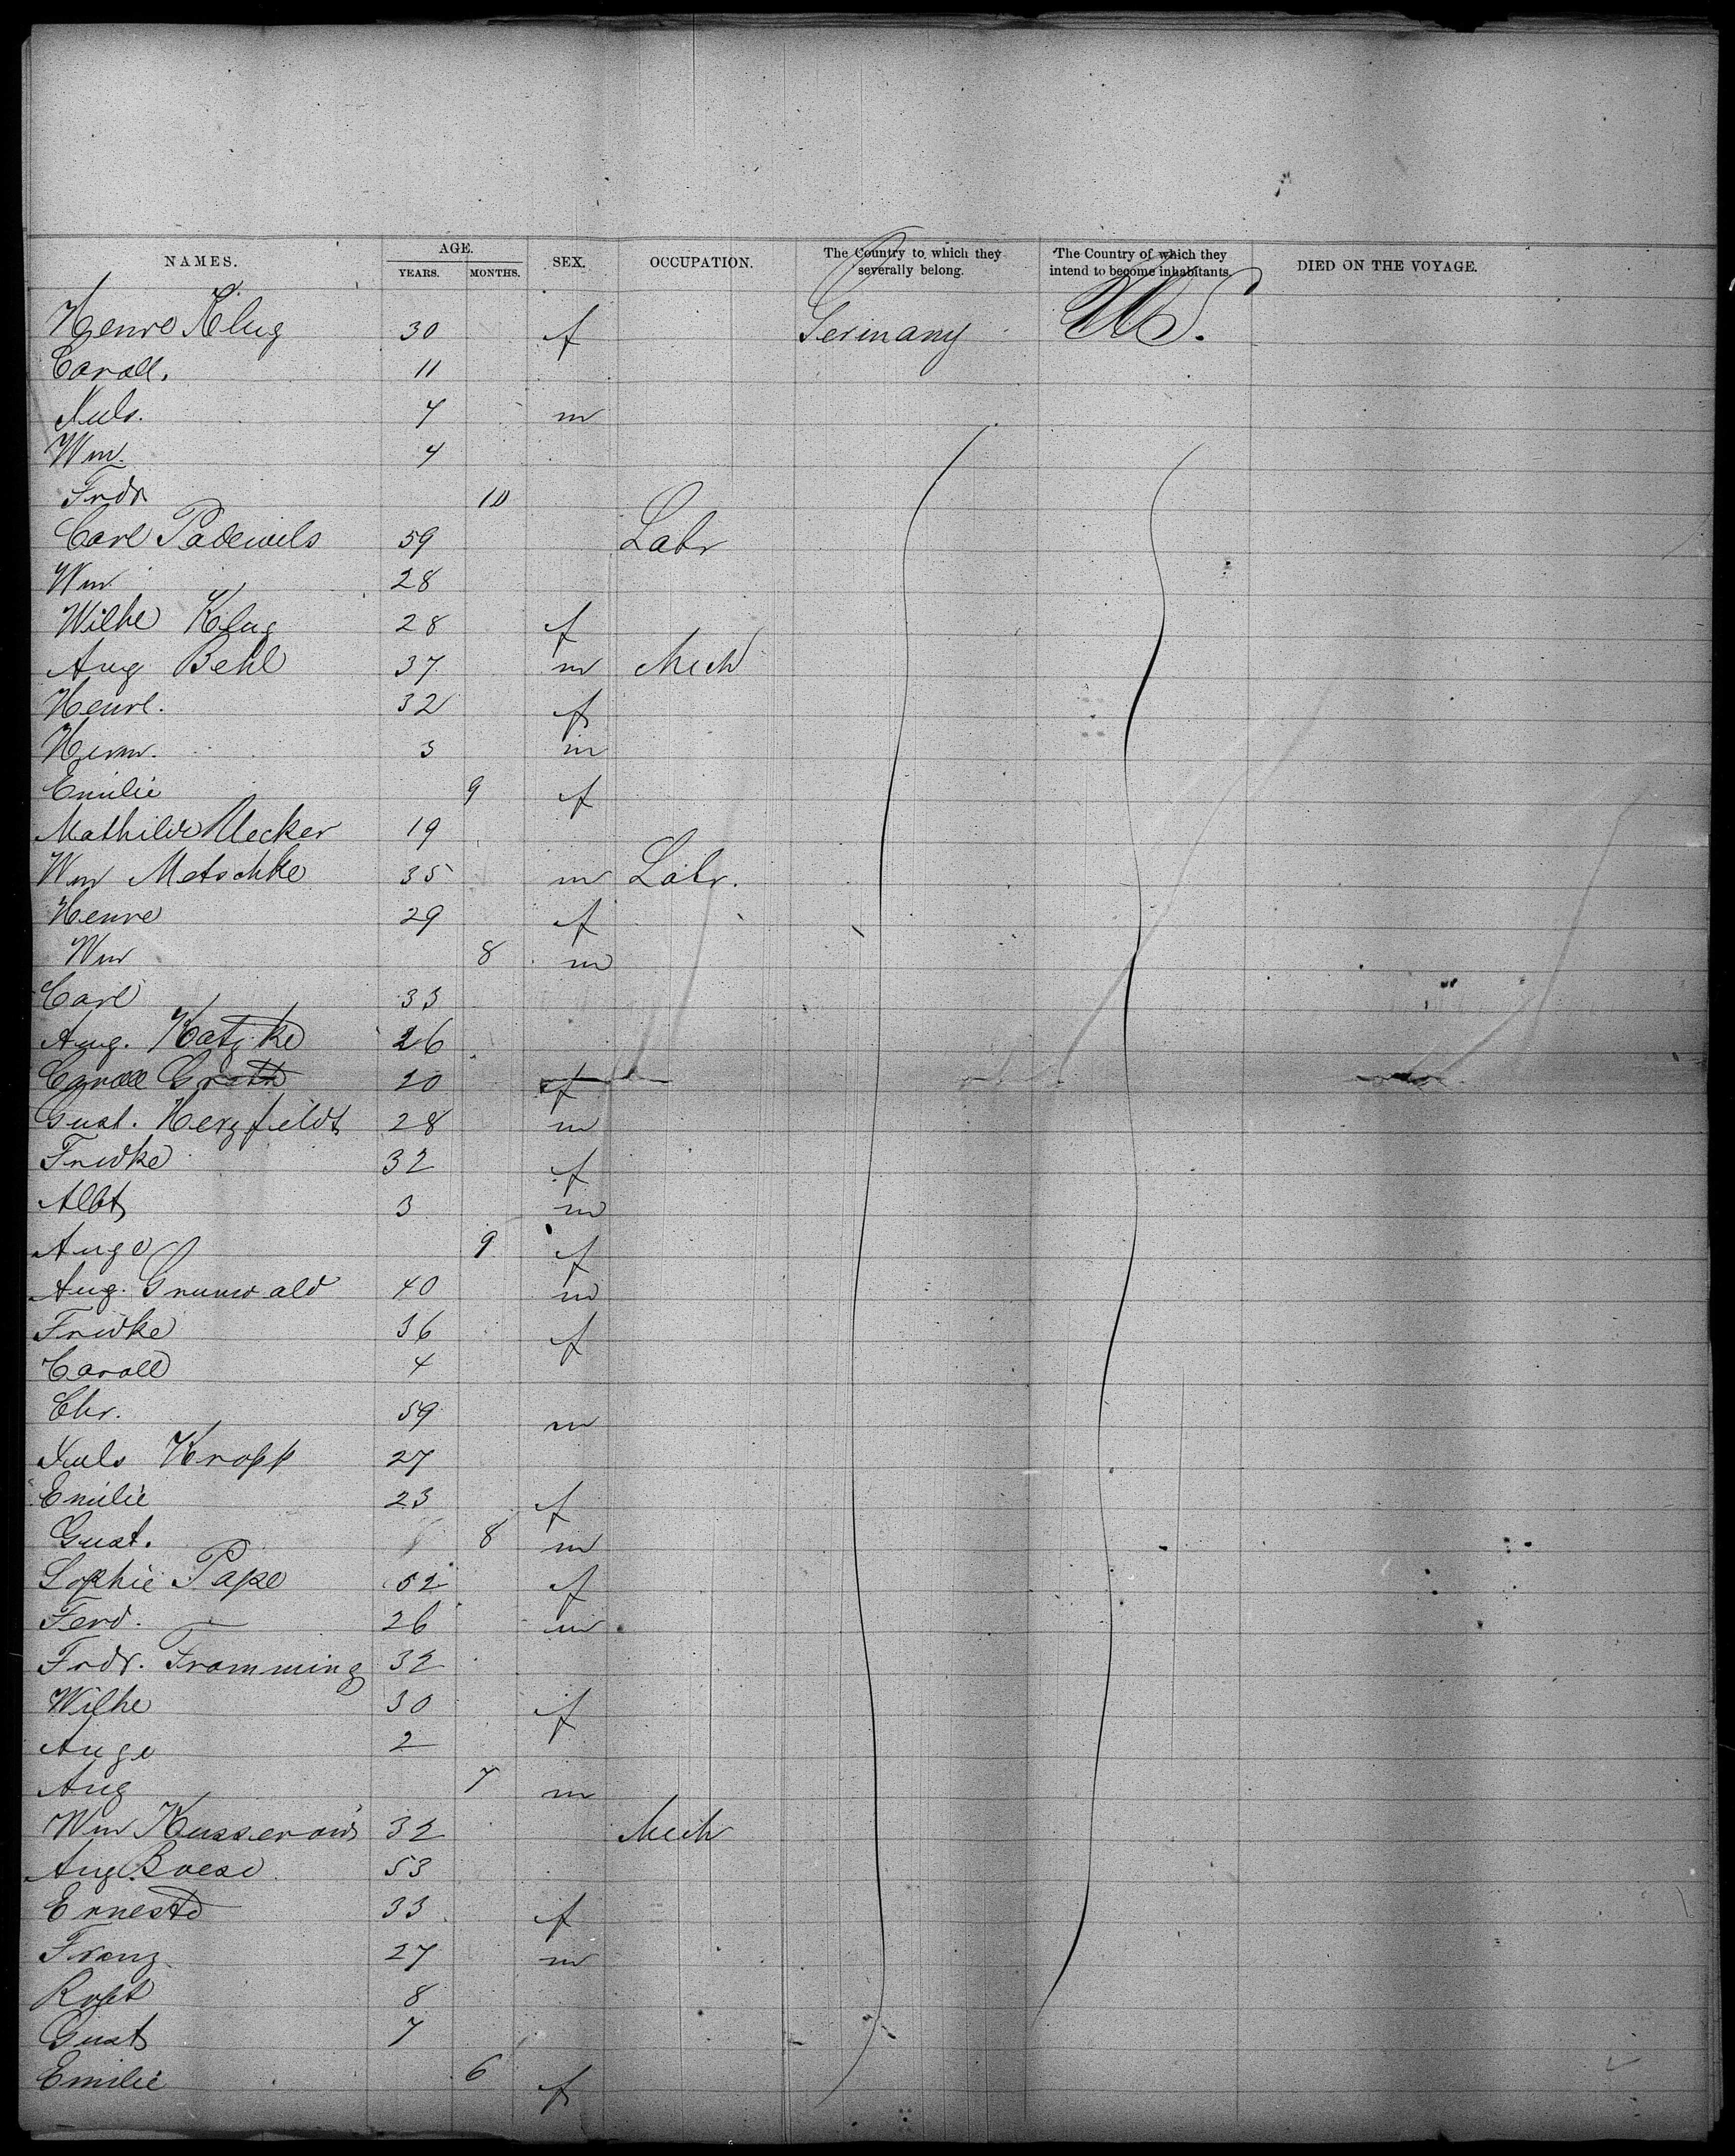 NAMES. AGE. YEARS. MONTHS. SEX. OCCUPATION. The Country to which they severally belong. The Country of which they intend to become inhabitants. DIED ON THE VOYAGE.
Henre Klug 30 f Germany U.S.
Caroll. 11
Juls. 7 m
Wm. 4
Frdr 10
Carl Padewils 59 Labr
Wm 28
Wilhe Klug 28 f
Aug Behl 37 m Mech
Henrl. 32 f
Herm. 3 m
Emilie 9 f
Mathilde Uecker 19
Wm Metschke 35 m Labr.
Henre 29 f
Wm 8 m
Carl 33
Aug. Katzke 26
Caroll Groth 20 f
Gust. Herzfeldt 28 m
Fridke 32 f
Albt 3 m
Auge 9 f
Aug. Grunwald 40 m
Fridke 36 f
Caroll 4
Chr. 59 m
Juls Kropp 27
Emilie 23 f
Gust. 8 m
Sophie Pape 52 f
Ferd. 26 m
Frdr. Framming 32
Wilhe 30 f
Auge 2
Aug 7 m
Wm Kusserow 32 Mech
Aug. Boese 53
Ernestd 33 f
Franz 27 m
Robt 8
Gust 7
Emilie 6 f